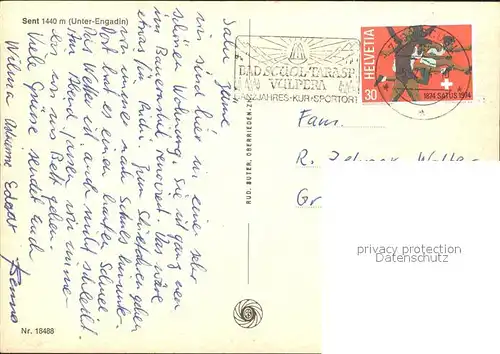 Sent 1440 m (Unter-Engadin)
Salü zäme!
wir sind hier in einer sehr
schönen Wohnung. Sie ist ganz neu
im Bauernstil renoviert. Das wäre
etwas für Ruedi. Zum Skifahren gehen
wir immer nach Scuol hinunter.
Dort hat es einen harten Schnee.
Das Wetter ist auch nicht schlecht.
Am Abend jassen wir immer
bevor wir ins Bett gehen.
Viele Grüsse sendet Euch
Wilma
Nr. 18488
RUD. SUTER, OBERRIEDEN-Z
BAD SCUOL-TARASP
VULPERA
JAHRES-KUR-SPORTORT
HELVETIA
30
1874 SATUS 1974
Fam.
R.
Gr
privacy protection
Datenschutz